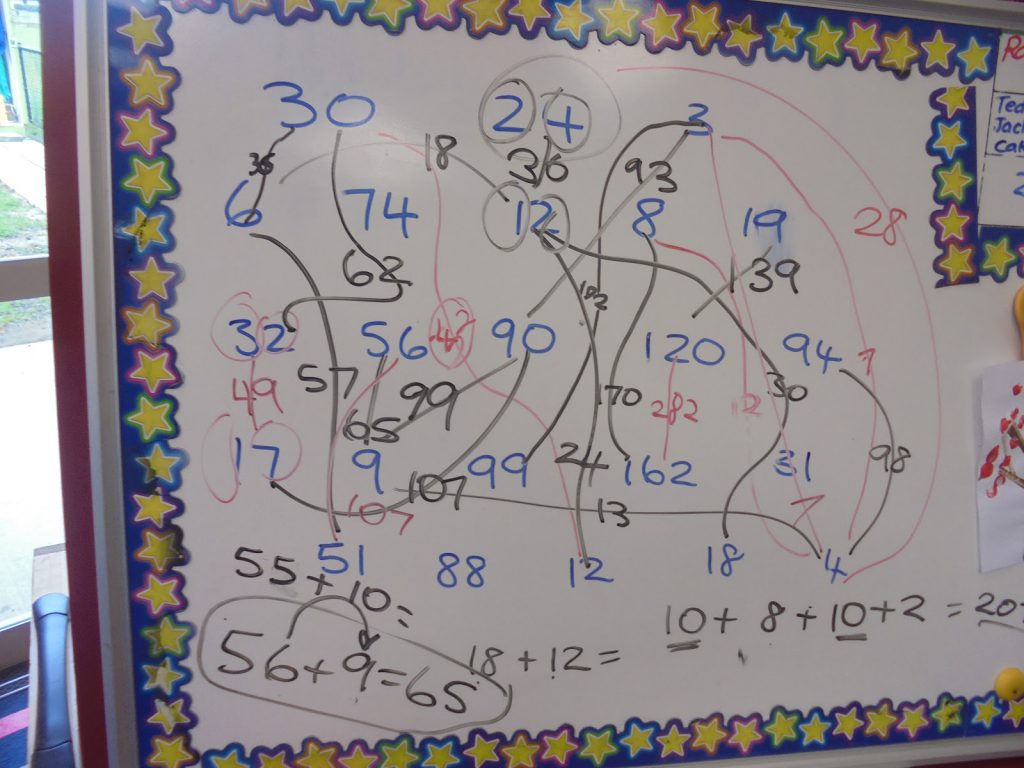 30 24 3
36 18 36 93
6 74 12 8 19 28
68 39
102
32 56 90 120 94 7
49 57 99 170 282 12 30
65
17 9 99 162 31 98
107 24
107 13 7
51 88 12 18 4
55 + 10 =
10 + 8 + 10 + 2 = 20
56 + 9 = 65 18 + 12 =
Tea
Jack